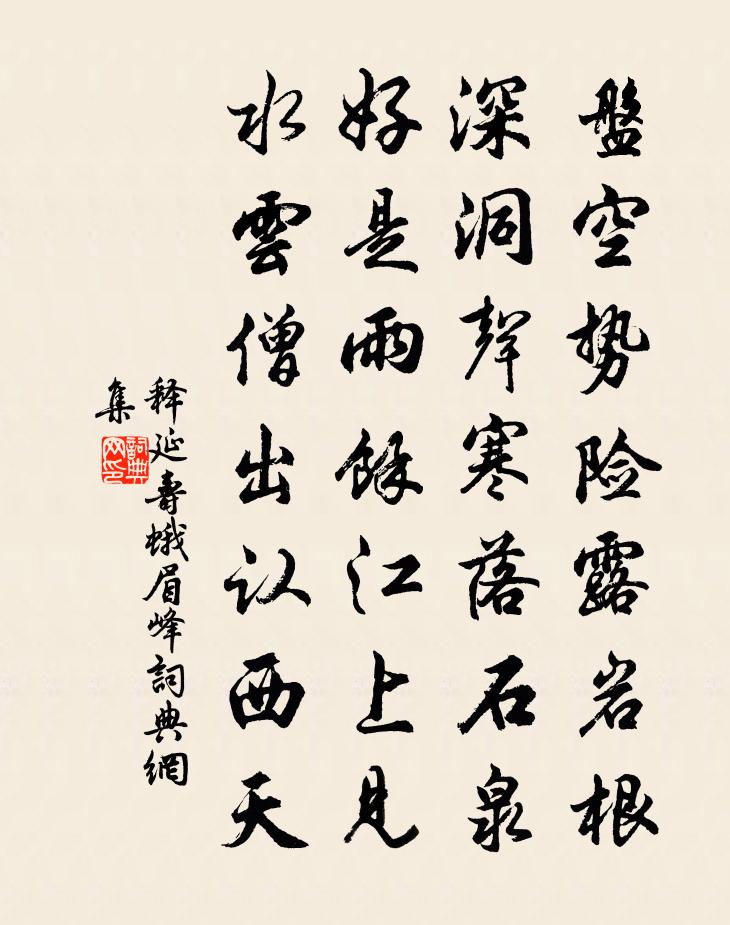 盤空勢险露岩根
深洞聲寒落石泉
好是雨餘江上見
水雲僧出认西天
释延壽蛾眉峰詞典網
集
詞典
网印